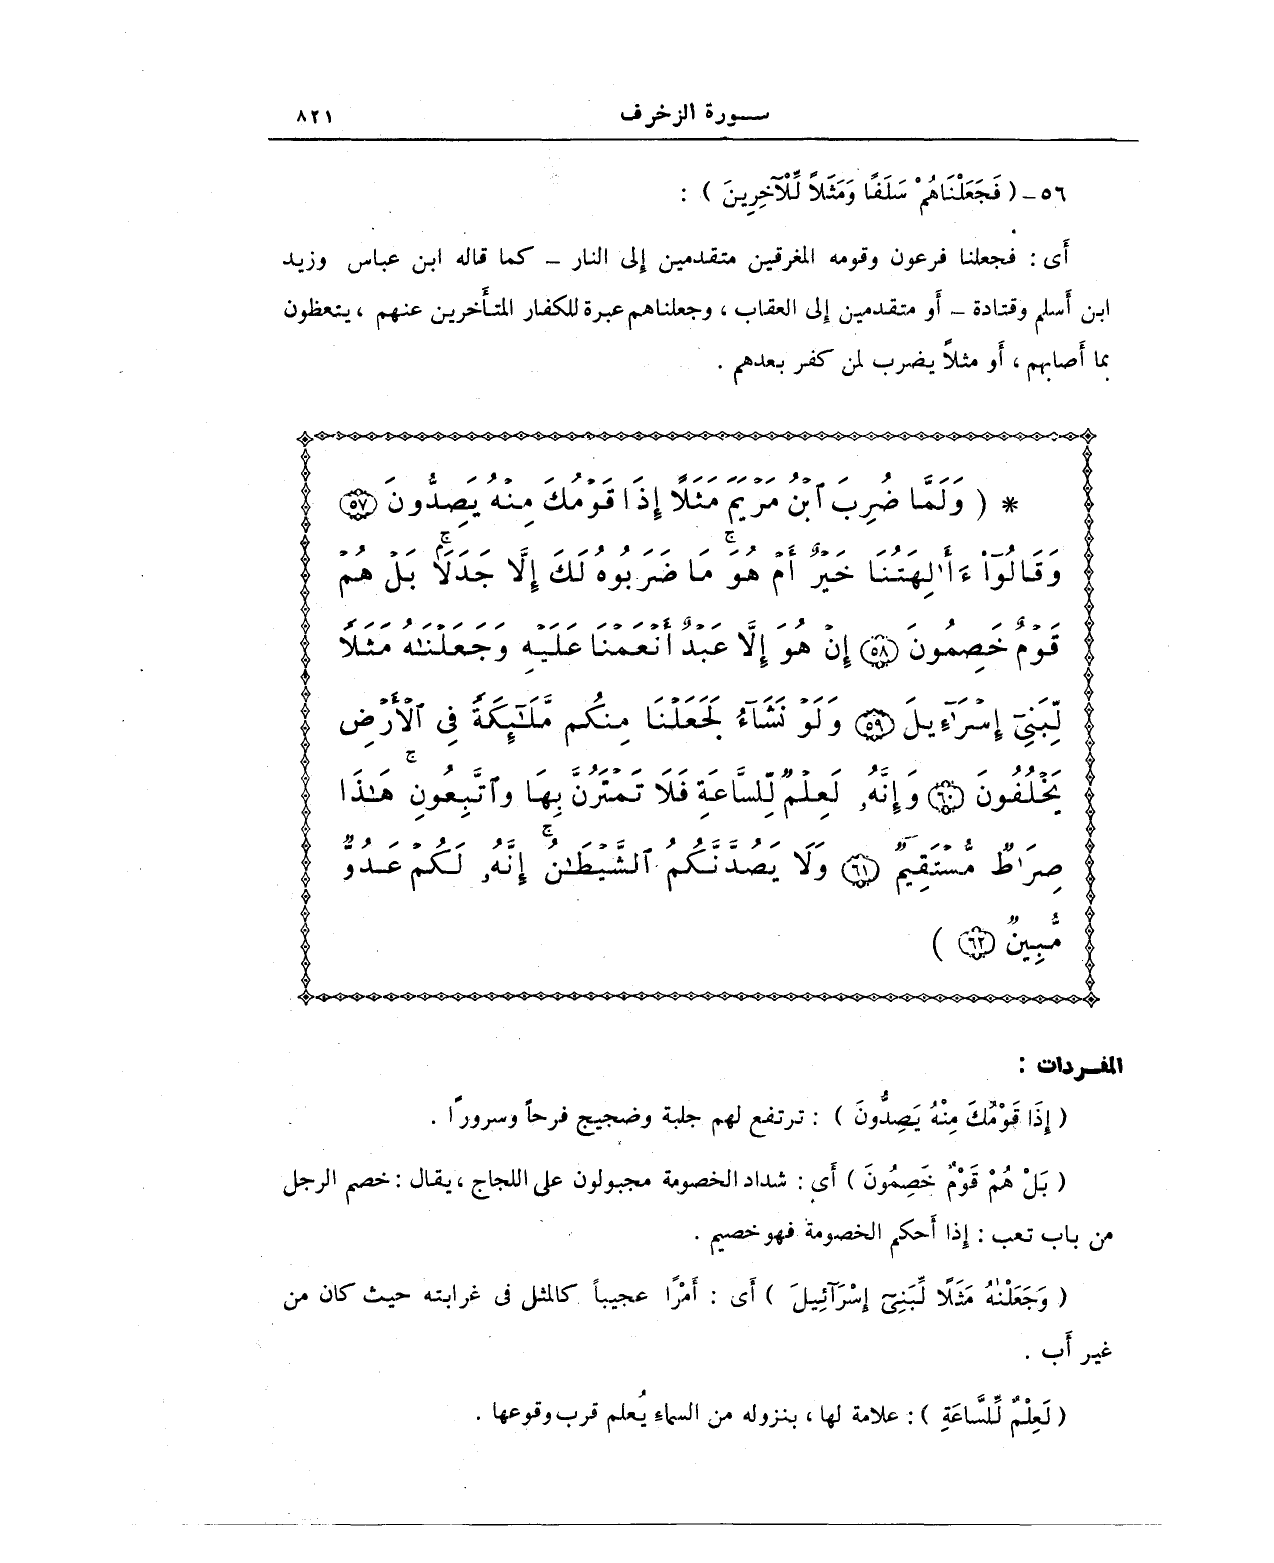 سورة الزخرف ٨٢١
٥٦ - ( فَجَعَلْنَاهُمْ سَلَفًا وَمَثَلاً لِّلْآخِرِينَ ) :
أَى : فجعلنا فرعون وقومه المغرقين متقدمين إلى النار – كما قاله ابن عباس وزيد
ابن أَسلم وقتادة – أَو متقدمين إلى العقاب ، وجعلناهم عبرة للكفار المتأَخرين عنهم ، يتعظون
بما أَصابهم ، أَو مثلاً يضرب لمن كفر بعدهم .
* ( وَلَمَّا ضُرِبَ ٱبْنُ مَرْيَمَ مَثَلًا إِذَا قَوْمُكَ مِنْهُ يَصِدُّونَ ٥٧
وَقَالُوٓا۟ ءَأَٰلِهَتُنَا خَيْرٌ أَمْ هُوَ ۚ مَا ضَرَبُوهُ لَكَ إِلَّا جَدَلًا ۚ بَلْ هُمْ
قَوْمٌ خَصِمُونَ ٥٨ إِنْ هُوَ إِلَّا عَبْدٌ أَنْعَمْنَا عَلَيْهِ وَجَعَلْنَٰهُ مَثَلًا
لِّبَنِىٓ إِسْرَٰٓءِيلَ ٥٩ وَلَوْ نَشَآءُ لَجَعَلْنَا مِنكُم مَّلَٰٓئِكَةً فِى ٱلْأَرْضِ
يَخْلُفُونَ ٦٠ وَإِنَّهُۥ لَعِلْمٌ لِّلسَّاعَةِ فَلَا تَمْتَرُنَّ بِهَا وَٱتَّبِعُونِ ۚ هَٰذَا
صِرَٰطٌ مُّسْتَقِيمٌ ٦١ وَلَا يَصُدَّنَّكُمُ ٱلشَّيْطَٰنُ ۚ إِنَّهُۥ لَكُمْ عَدُوٌّ
مُّبِينٌ ٦٢ )
المفردات :
( إِذَا قَوْمُكَ مِنْهُ يَصِدُّونَ ) : ترتفع لهم جلبة وضجيج فرحاً وسرورًا .
( بَلْ هُمْ قَوْمٌ خَصِمُونَ ) أَى : شداد الخصومة مجبولون على اللجاج ، يقال : خصم الرجل
من باب تعب : إذا أَحكم الخصومة فهو خصيم .
( وَجَعَلْنَٰهُ مَثَلًا لِّبَنِىٓ إِسْرَآئِيلَ ) أَى : أَمْرًا عجيباً كالمثل فى غرابته حيث كان من
غير أَب .
( لَعِلْمٌ لِّلسَّاعَةِ ) : علامة لها ، بنزوله من السماء يُعلم قرب وقوعها .